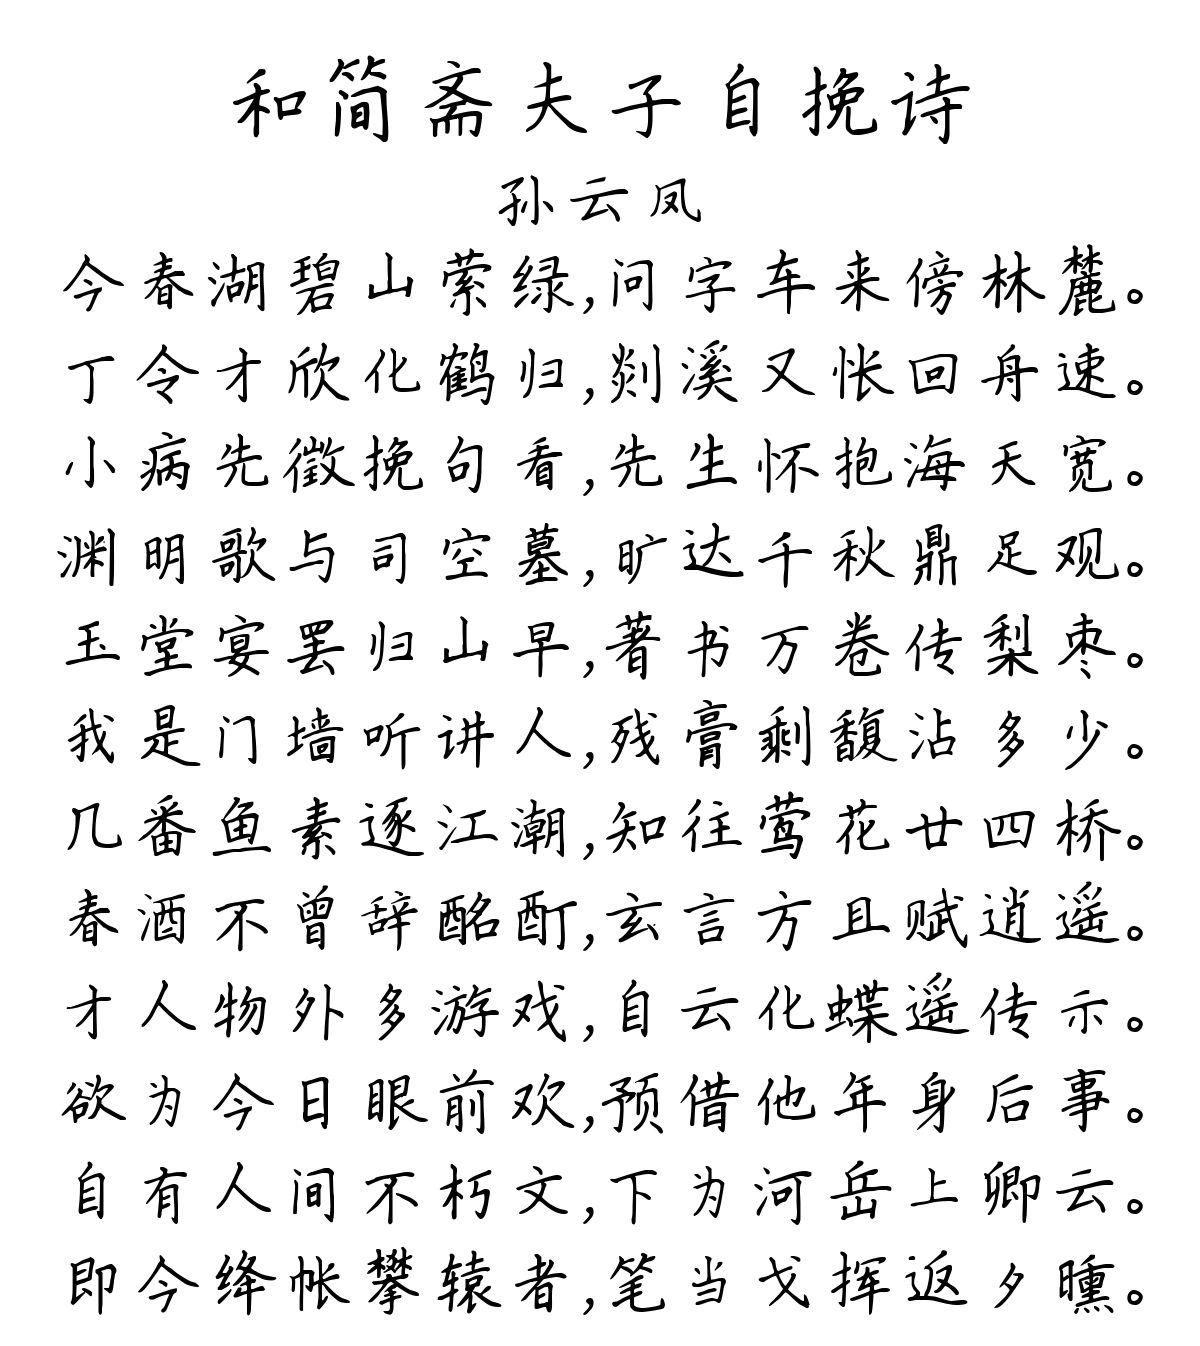 和简斋夫子自挽诗
孙云凤
今春湖碧山萦绿,问字车来傍林麓。
丁令才欣化鹤归,剡溪又怅回舟速。
小病先徵挽句看,先生怀抱海天宽。
渊明歌与司空墓,旷达千秋鼎足观。
玉堂宴罢归山早,著书万卷传梨枣。
我是门墙听讲人,残膏剩馥沾多少。
几番鱼素逐江潮,知往莺花廿四桥。
春酒不曾辞酩酊,玄言方且赋逍遥。
才人物外多游戏,自云化蝶遥传示。
欲为今日眼前欢,预借他年身后事。
自有人间不朽文,下为河岳上卿云。
即今绛帐攀辕者,笔当戈挥返夕曛。